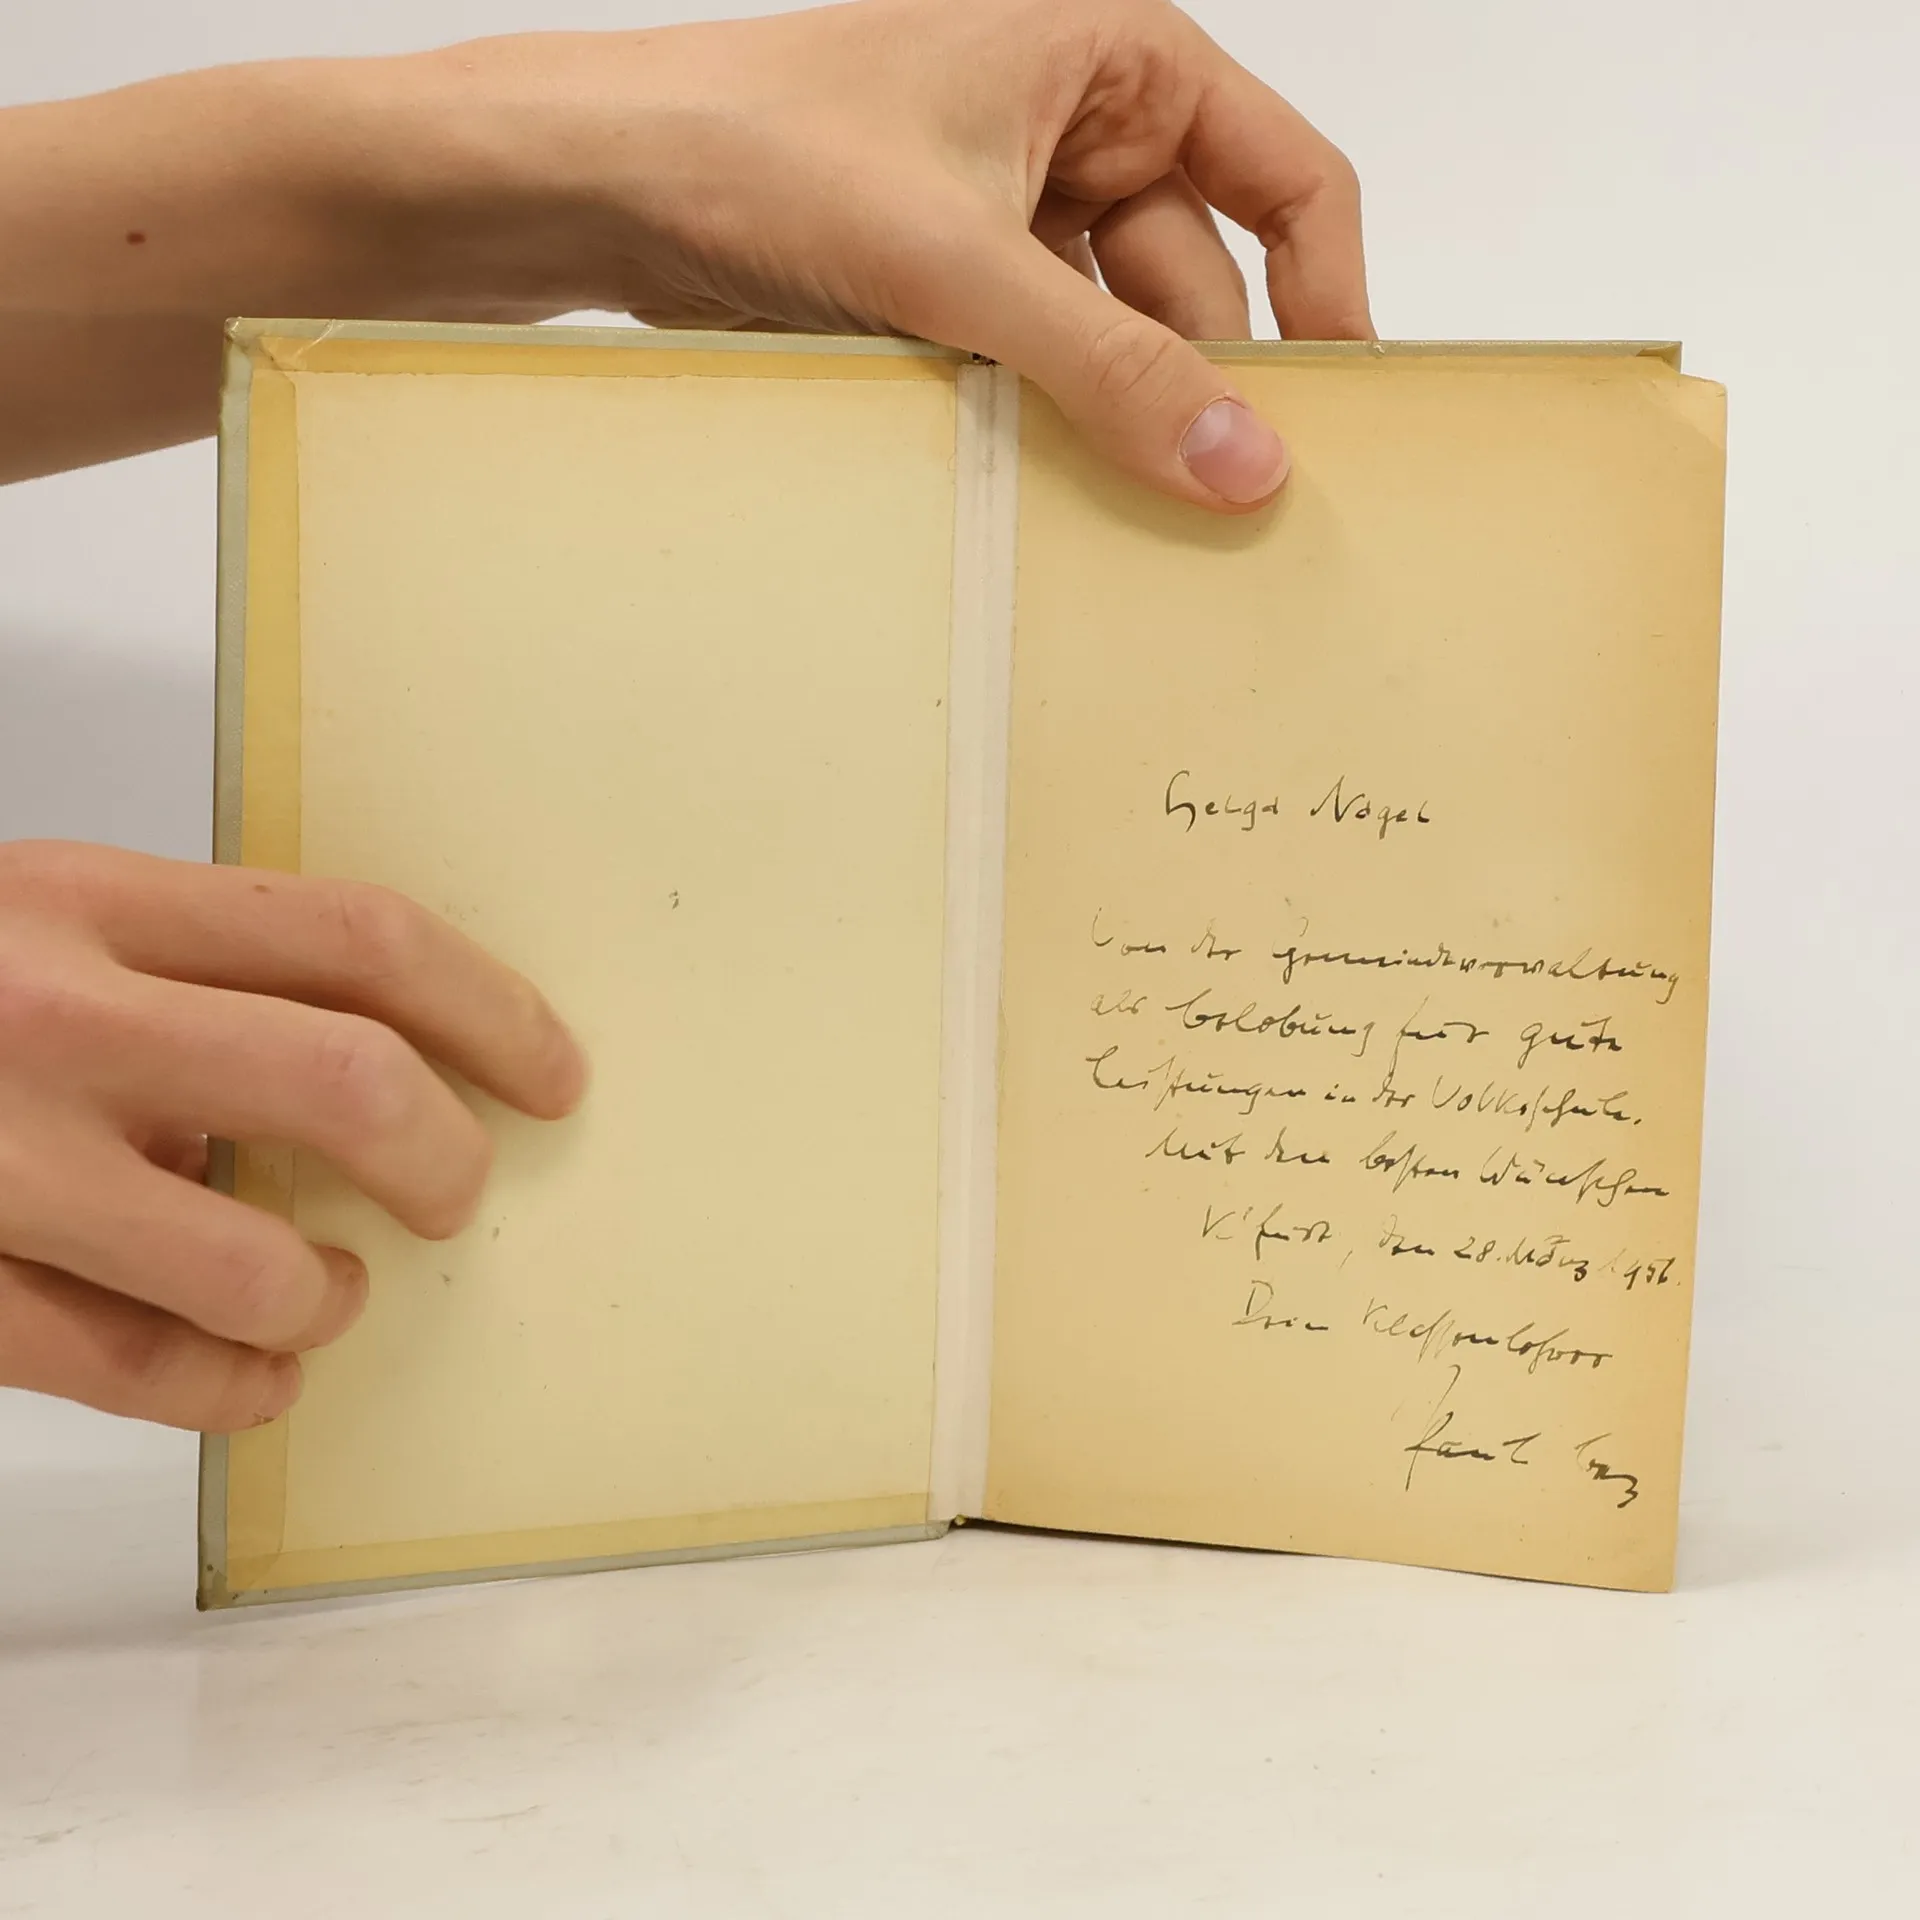 Helga Nagel
Von der Gemeindeverwaltung
als Belobung für gute
Leistungen in der Volksschule.
Mit den besten Wünschen
K'furt, den 28. März 1956.
Dein Klassenlehrer
Paul